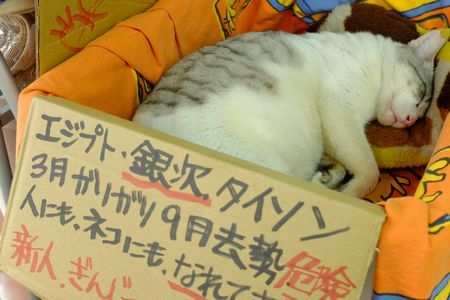 エジプト、銀次、タイソン
3月ガリガリ9月去勢危険
人にも、ネコにも、なれてま
新人、ぎんじ